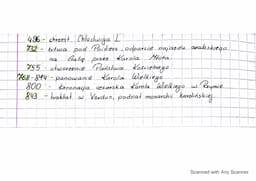 496 - chrzest Chlodwiga I.
732 - bitwa pod Poitiers, odparcie najazdu arabskiego
na Galię przez Karola Młota.
755 - utworzenie Państwa Kościelnego
768-814 - panowanie Karola Wielkiego
800 - koronacja cesarska Karola Wielkiego w Rzymie
843 - traktat w Verdun, podział monarchii karolińskiej
Scanned with Any Scanner